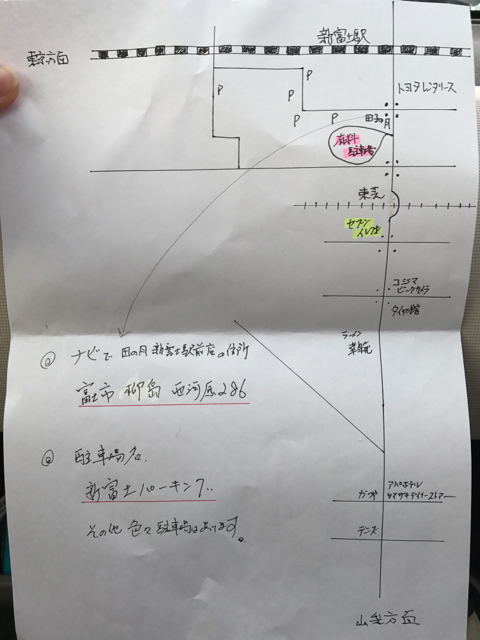 新富士駅
東京方面
トヨタレンタリース
P
P
P
P
P
田子の月
有料
駐車場
東芝
セブン
イレブン
コジマ
ビックカメラ
タイヤ館
ラーメン
ナビで 田子の月 新富士駅前店の住所
富士市 柳島 西河原286
駐車場名
新富士パーキング
その他 色々 駐車場はあります。
アパホテル
ヤマザキデイリーストアー
ガスト
デニーズ
山梨方面